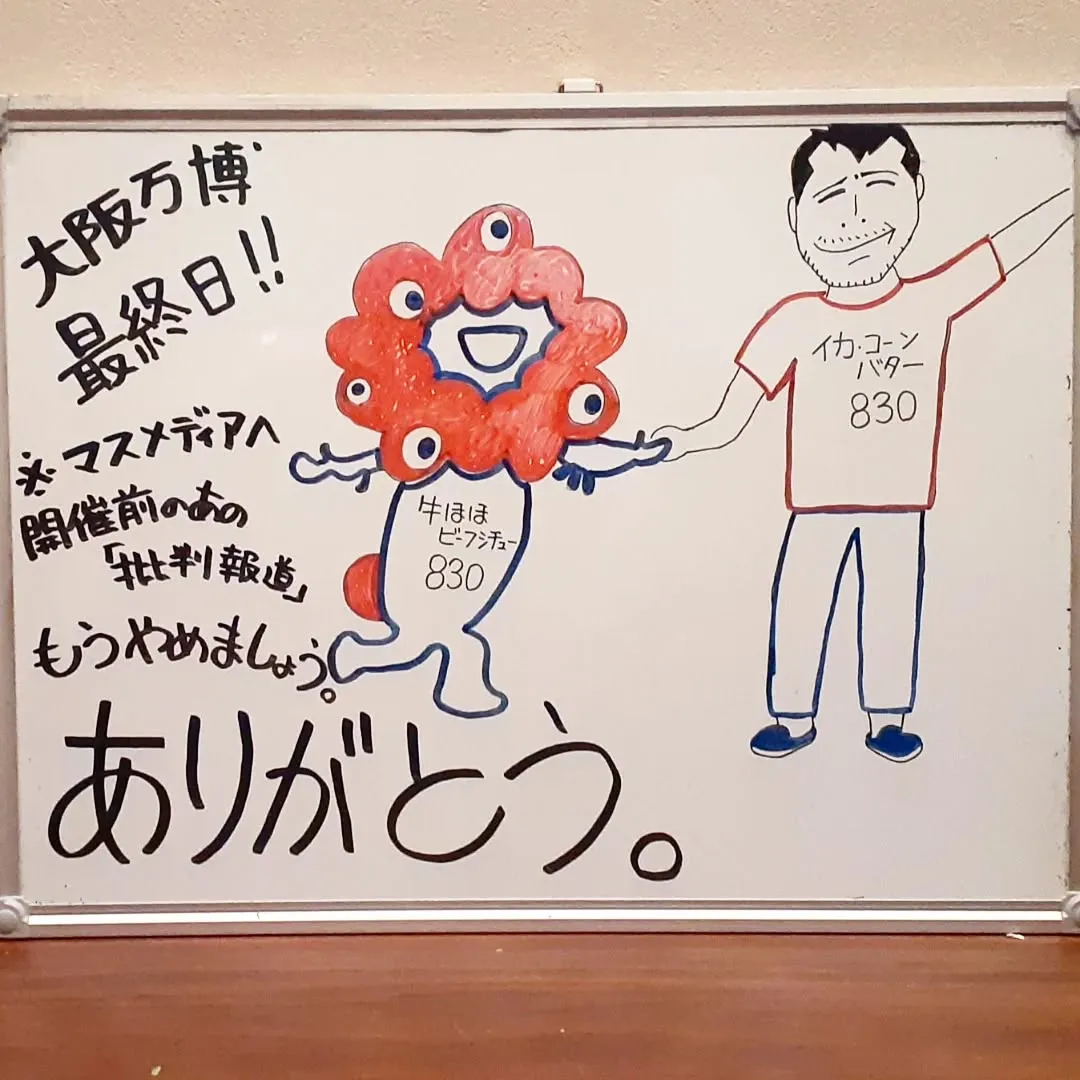 大阪万博
最終日!!
※マスメディアへ
開催前のあの
「批判報道」
もうやめましょう。
ありがとう。
牛ほほ
ビーフシチュー
830
イカ・コーン
バター
830